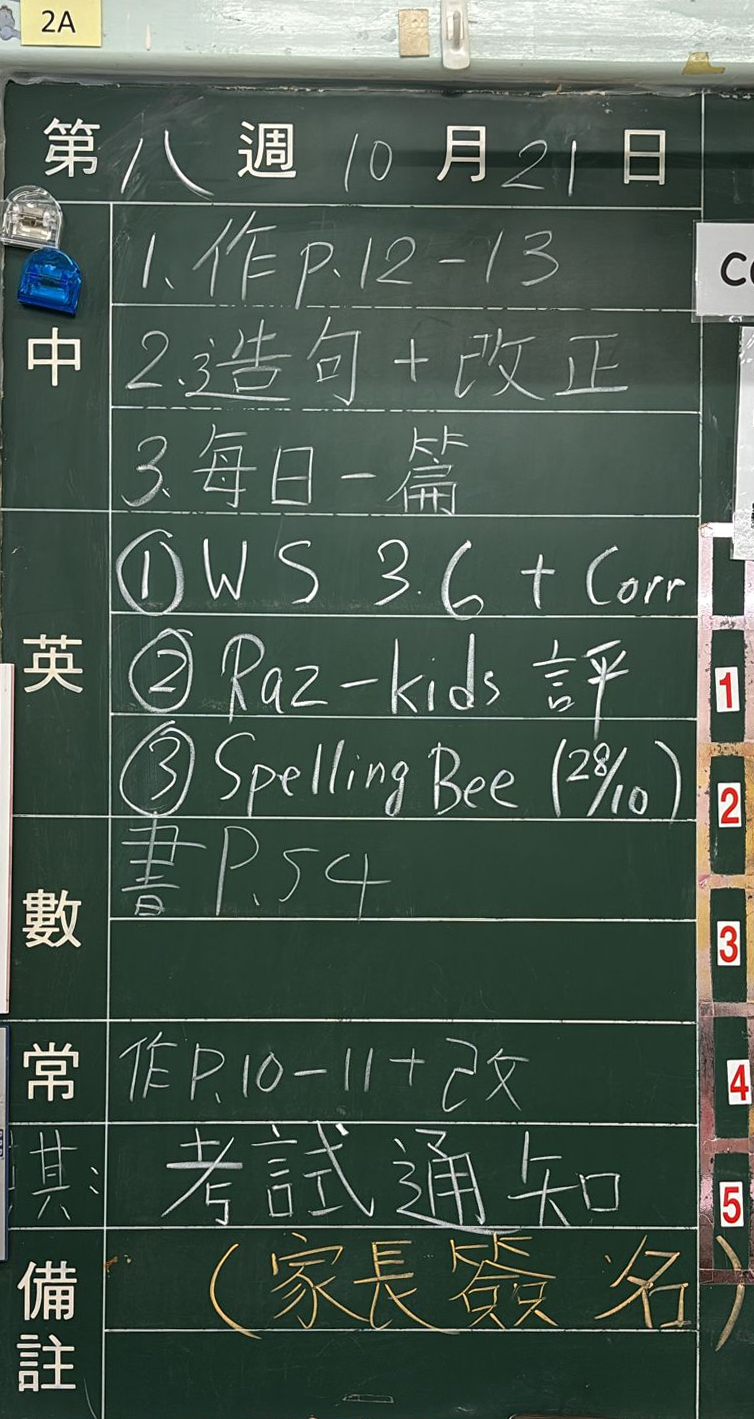 2A
第八週10月21日
中
1.作P.12-13
2.造句+改正
3.每日一篇
英
①WS 3.6 + Corr
②Raz-kids 評
③Spelling Bee (28/10)
數
書P.54
常
作P.10-11+改
其:
考試通知
備註
(家長簽名)
1
2
3
4
5